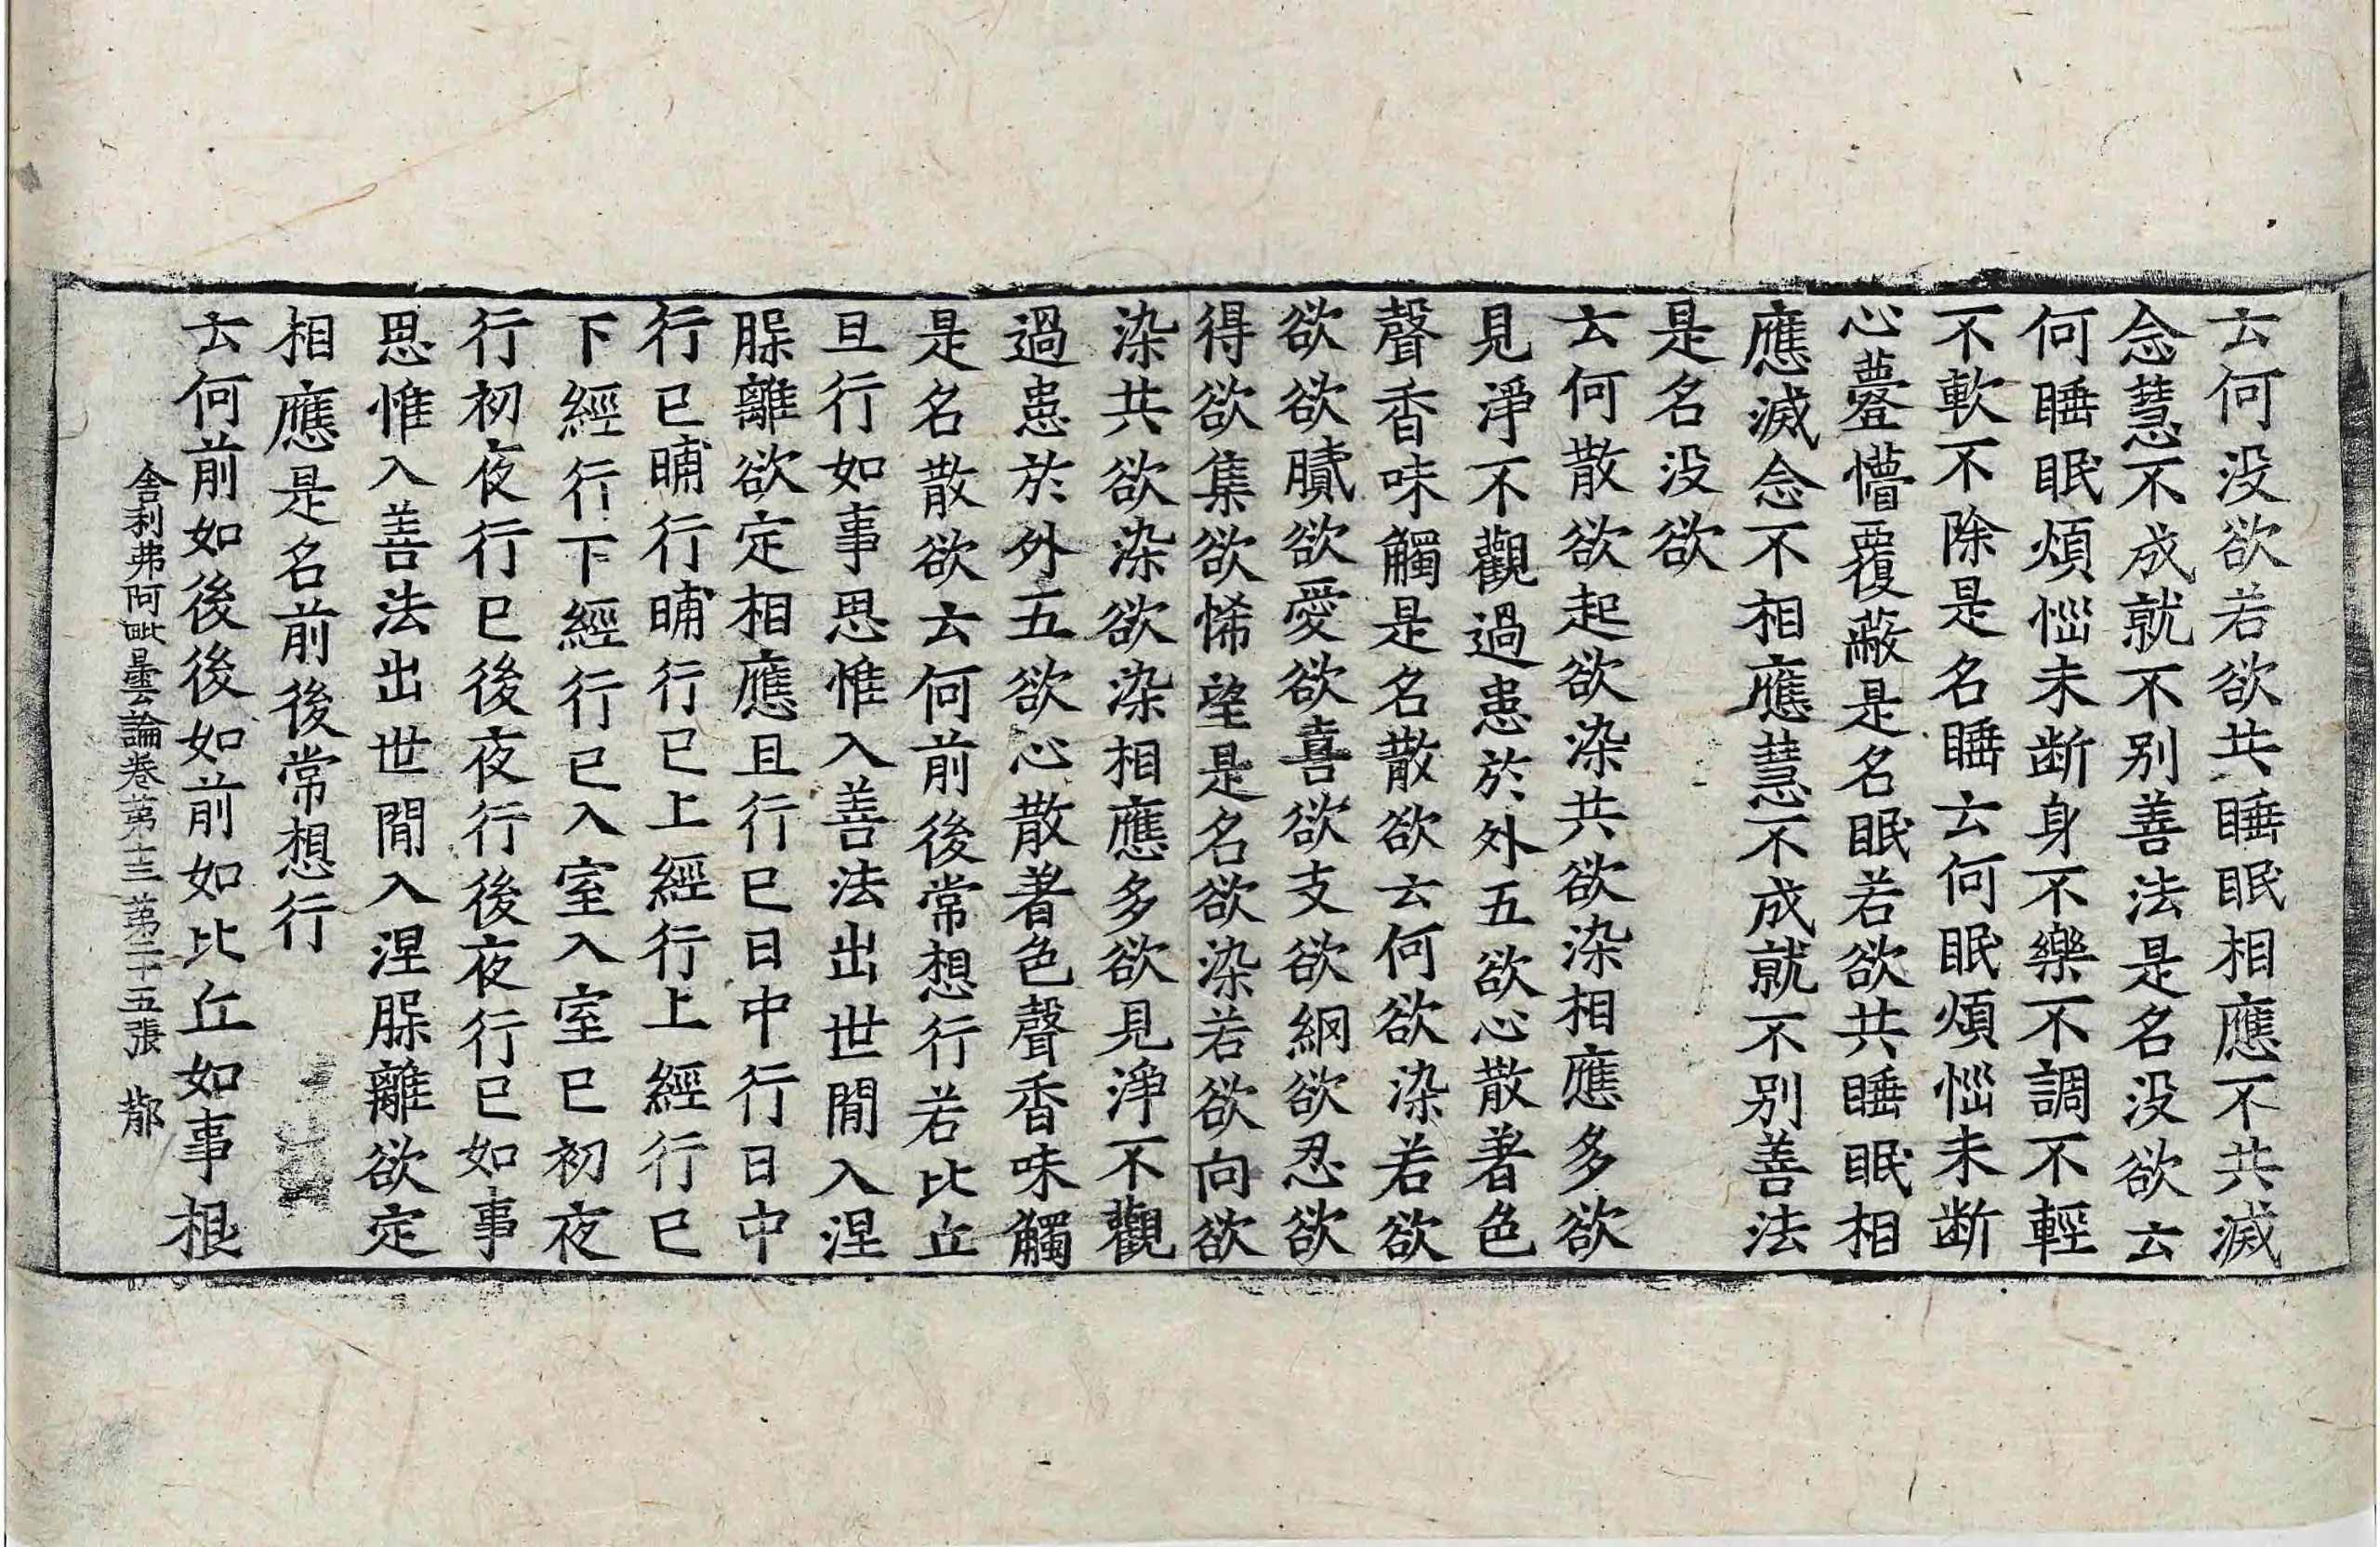 云何没欲若欲共睡眠相應不共滅
念慧不成就不别善法是名没欲云
何睡眠煩惱未断身不樂不調不輕
不軟不除是名睡云何眠煩惱未断
心䒢懵覆蔽是名眠若欲共睡眠相
應滅念不相應慧不成就不别善法
是名没欲
云何散欲起欲染共欲染相應多欲
見淨不觀過患於外五欲心散著色
聲香味觸是名散欲云何欲染若欲
欲欲膩欲愛欲喜欲支欲網欲忍欲
得欲集欲悕望是名欲染若欲向欲
染共欲染欲染相應多欲見淨不觀
過患於外五欲心散著色聲香味觸
是名散欲云何前後常想行若比丘
旦行如事思惟入善法出世間入涅
槃離欲定相應旦行已日中行日中
行已晡行晡行已上經行上經行已
下經行下經行已入室入室已初夜
行初夜行已後夜行後夜行已如事
思惟入善法出世間入涅槃離欲定
相應是名前後常想行
云何前如後後如前如比丘如事根
舍利弗阿毗曇論卷第十三 第二十五張 鄁